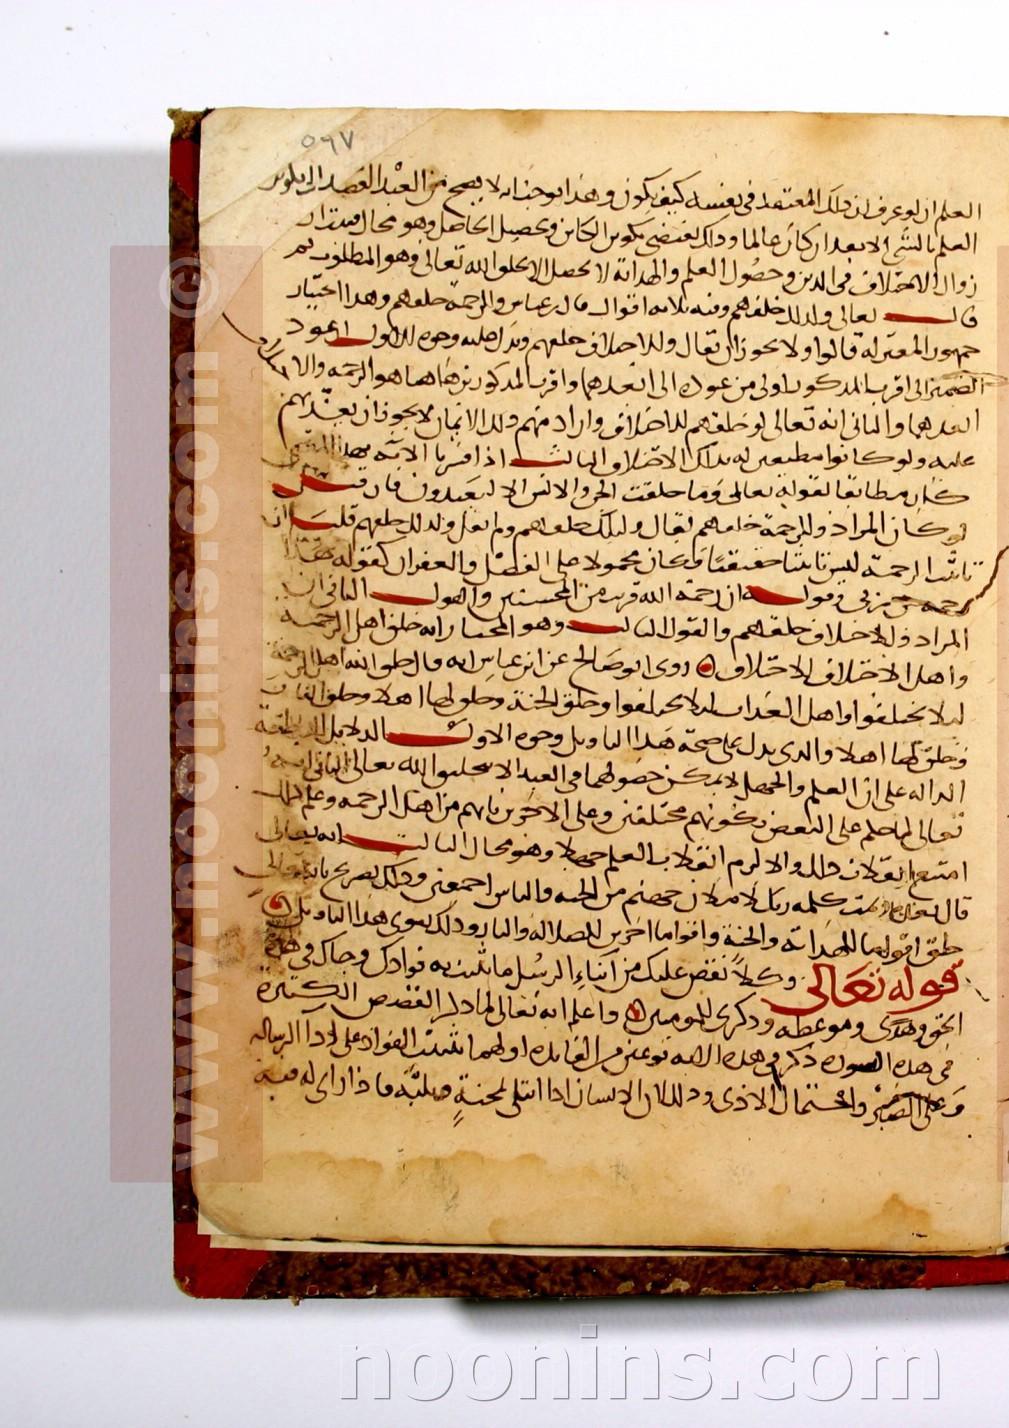 ٥٩٧
العلم ان لو عرف ان ذلك المعتقد في نفسه كيف يكون وهذا يوجب انه لا يصح من العبد القصد الى تكوين
العلم بالشي الا بعد ان كان عالما وذلك يقتضي تكوين الكائن وتحصيل الحاصل وهو محال فثبت ان
زوال الاختلاف في الدين وحصول العلم والهداية لا يحصل الا بخلق الله تعالى وهو المطلوب ثم
قال تعالى ولذلك خلقهم وفيه ثلاثة اقوال قال ابن عباس وللرحمة خلقهم وهذا اختيار
جمهور المعتزلة قالوا ولا يجوز ان يقال وللاختلاف خلقهم ويدل عليه وجوه الاول عود
الضمير الى اقرب المذكورين اولى من عوده الى ابعدهما واقرب المذكورين هاهنا هو الرحمة والاختلاف
ابعدهما والثاني انه تعالى لو خلقهم للاختلاف واراد منهم ذلك الايمان لا يجوز ان يعذبهم
عليه ولو كانوا مطيعين له بذلك الاختلاف الثالث اذا فسرنا الاية بهذا المعنى
كان مطابقا لقوله تعالى وما خلقت الجن والانس الا ليعبدون فان قيل
لو كان المراد وللرحمة خلقهم لقال ولتلك خلقهم ولم يقل ولذلك خلقهم قلنا ان
تانيث الرحمة ليس تانيثا حقيقيا فكان محمولا على الفضل والغفران كقوله هذا
رحمة من ربي وقوله ان رحمة الله قريب من المحسنين والقول الثاني ان
المراد وللاختلاف خلقهم والقول الثالث وهو المختار انه خلق اهل الرحمة
واهل الاختلاف للاختلاف روى ابو صالح عن ابن عباس انه قال خلق الله اهل الرحمة
ليلا يختلفوا واهل العذاب لان يختلفوا وخلق الجنة وخلق لها اهلا وخلق النار
وخلق لها اهلا والذي يدل على صحة هذا التاويل وجوه الاول الدلايل القاطعة
الدالة على ان العلم والجهل لا يمكن حصولهما في العبد الا بتخليق الله تعالى الثاني انه
تعالى لما حكم على البعض بكونهم مختلفين وعلى الاخرين بانهم من اهل الرحمة وعلم ذلك
امتنع انقلاب ذلك والا لزم انقلاب العلم جهلا وهو محال الثالث انه تعالى
قال بعده وتمت كلمة ربك لاملان جهنم من الجنة والناس اجمعين وذلك تصريح بانه تعالى
خلق اقواما للهداية والجنة واقواما اخرين للضلالة والنار وذلك يقوي هذا التاويل
قوله تعالى وكلا نقص عليك من انباء الرسل ما نثبت به فوادك وجاك في هذه
الحق وهدى وموعظة وذكرى للمومنين واعلم انه تعالى لما ذكر القصص الكثيرة
في هذه السورة ذكر في هذه الاية نوعين من الفايدة اولهما تثبيت الفواد على اداء الرسالة
وعلى الصبر واحتمال الاذى وذلك لان الانسان اذا ابتلى بمحنة وبلية فاذا راى له فيه
www.noonins.com ©
noonins.com